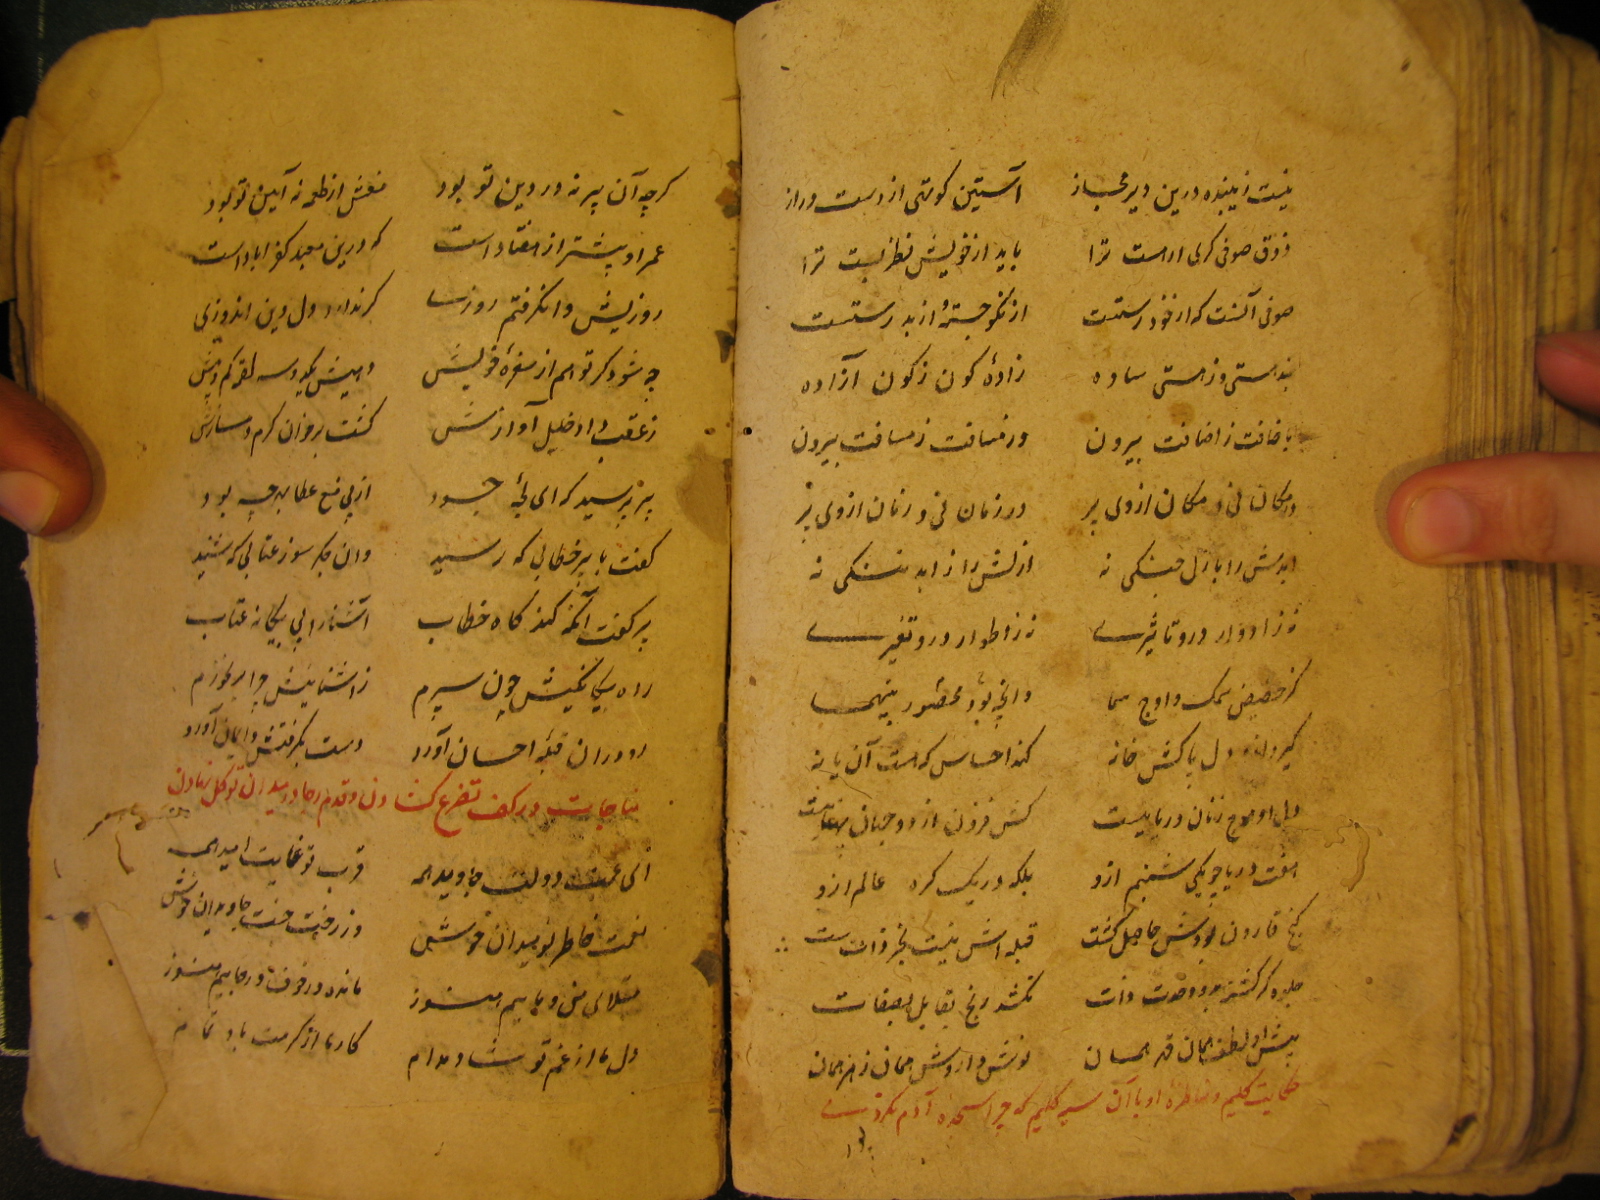 نیست زیبنده درین دیر مجاز آستین کوتهی از دست دراز
ذوق صوفی کری ار هست ترا باید از خویش نظر بست ترا
صوفی آنست که از خود رستست از نکو جسته و از بد رستست
بند هستی و ز هستی ساده زادهٔ کون ز کون آزاده
با ضافت ز اضافت بیرون در مسافت ز مسافت بیرون
در مکان نی و مکان از وی پر در زمان نی و زمان از وی پر
ابدش را با زل جنگی نه ازلش را ز ابد ننگی نه
نه ز ادوار درو تاثیری نه ز اطوار درو تغییری
کز حضیض سمک و اوج سما وانچه بود محصور بینهما
گیرد اندر دل پاکش خانه کند احساس که هست آن یا نه
دل او موج زنان دریاییست کش فزون از دو جهان پهناییست
هفت دریا چو یکی شبنم ازو بلکه در یک کره عالم ازو
گنج قارون بودش حاصل گشت قبله اش نیست بجز ذات
جلوه گر گشته برو وحدت ذات نکشد رنج تقابل بصفات
پیش او لطف همان قهر همان نوش داروش همان زهر همان
حکایت کلیم و مناظرهٔ او با آن سیه گلیم که چرا سجدهٔ آدم نکردی
گرچه آن پیر نه در دین تو بود منعش از طعمه نه آیین تو بود
عمر او بیشتر از هفتادست که درین معبد کفر آبادست
روزیش وا نگرفتم روزی که نداری دل دین اندوزی
چه شود گر تو هم از سفرهٔ خویش دهیش یک دو سه لقمه کم و بیش
از عقب داد خلیل آوازش گشت بر خوان کرم دمسازش
پیر پرسید که ای لجهٔ جود از پی منع عطا بهر چه بود
گفت با پیر خطابی که رسید وان جگر سوز عتابی که شنید
پیر گفت آنکه کند گاه خطاب آشنا را پی بیگانه عتاب
راه بیگانگیش چون سپرم ز آشناییش چرا بر نخورم
رو در آن قبلهٔ احسان آورد دست بگرفتش و ایمان آورد
مناجات در کف تضرع گشادن و قدم رجا در میدان توکل نهادن
ای غمت دولت جاوید همه قرب تو غایت امید همه
نیست خاطر نومیدان خوش وز رخت جنت جاویدان خوش
مبتلای منی و ماییم هنوز مانده در خوف و رجاییم هنوز
دل ما از غم تو شاد مدام کار ما از کرمت باد تمام